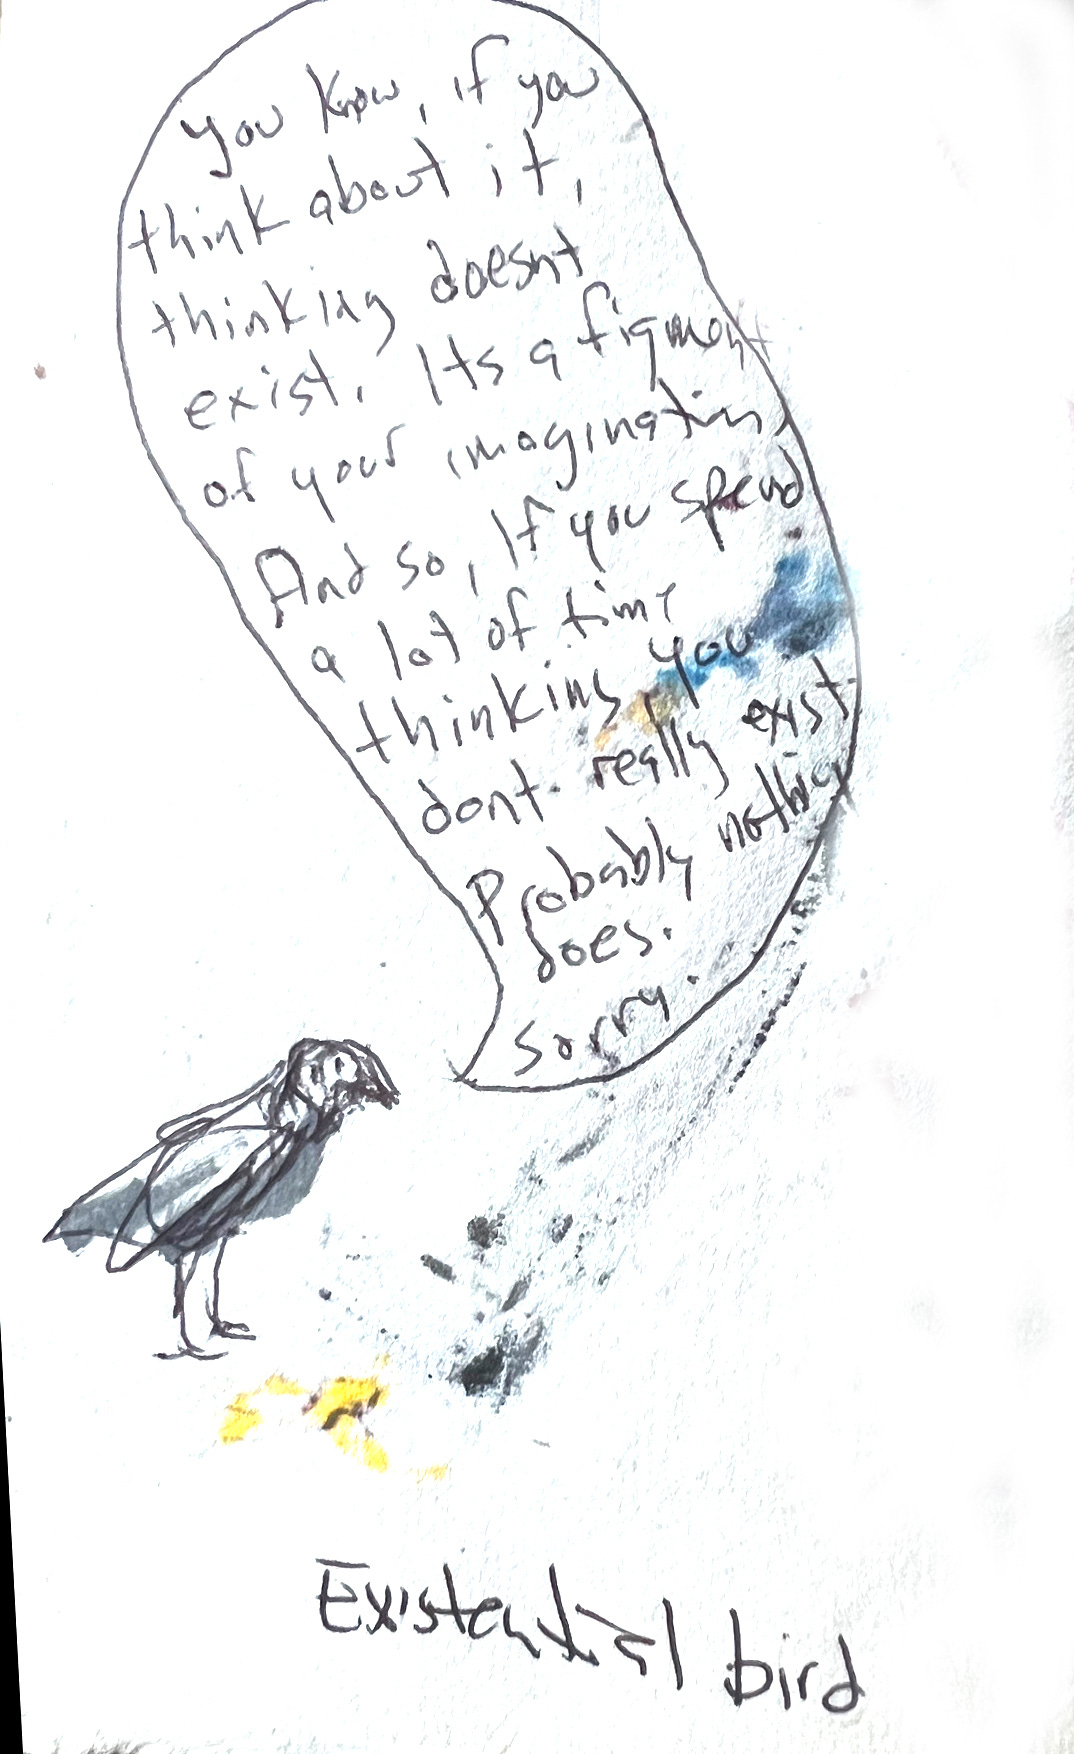 you know, if you
think about it,
thinking doesnt
exist. Its a figment
of your imagination,
And so, If you spend
a lot of time
thinking, you
dont really exist
Probably nothing
does.
Sorry.
Existential bird